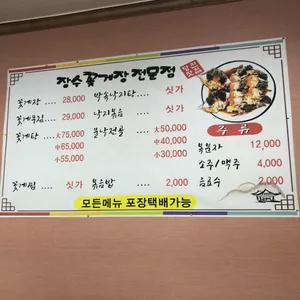 장수 꽃게장 전문점
꽃게장 .... 28,000
꽃게무침 ... 29,000
꽃게탕 ... 大75,000
中65,000
小55,000
꽃게찜 ... 싯가
박속낙지탕 ... 싯가
낙지볶음 ... 싯가
불낙전골 ... 大50,000
中40,000
小30,000
볶음밥 ... 2,000
주 류
복분자 12,000
소주/맥주 4,000
음료수 2,000
모든메뉴 포장택배가능